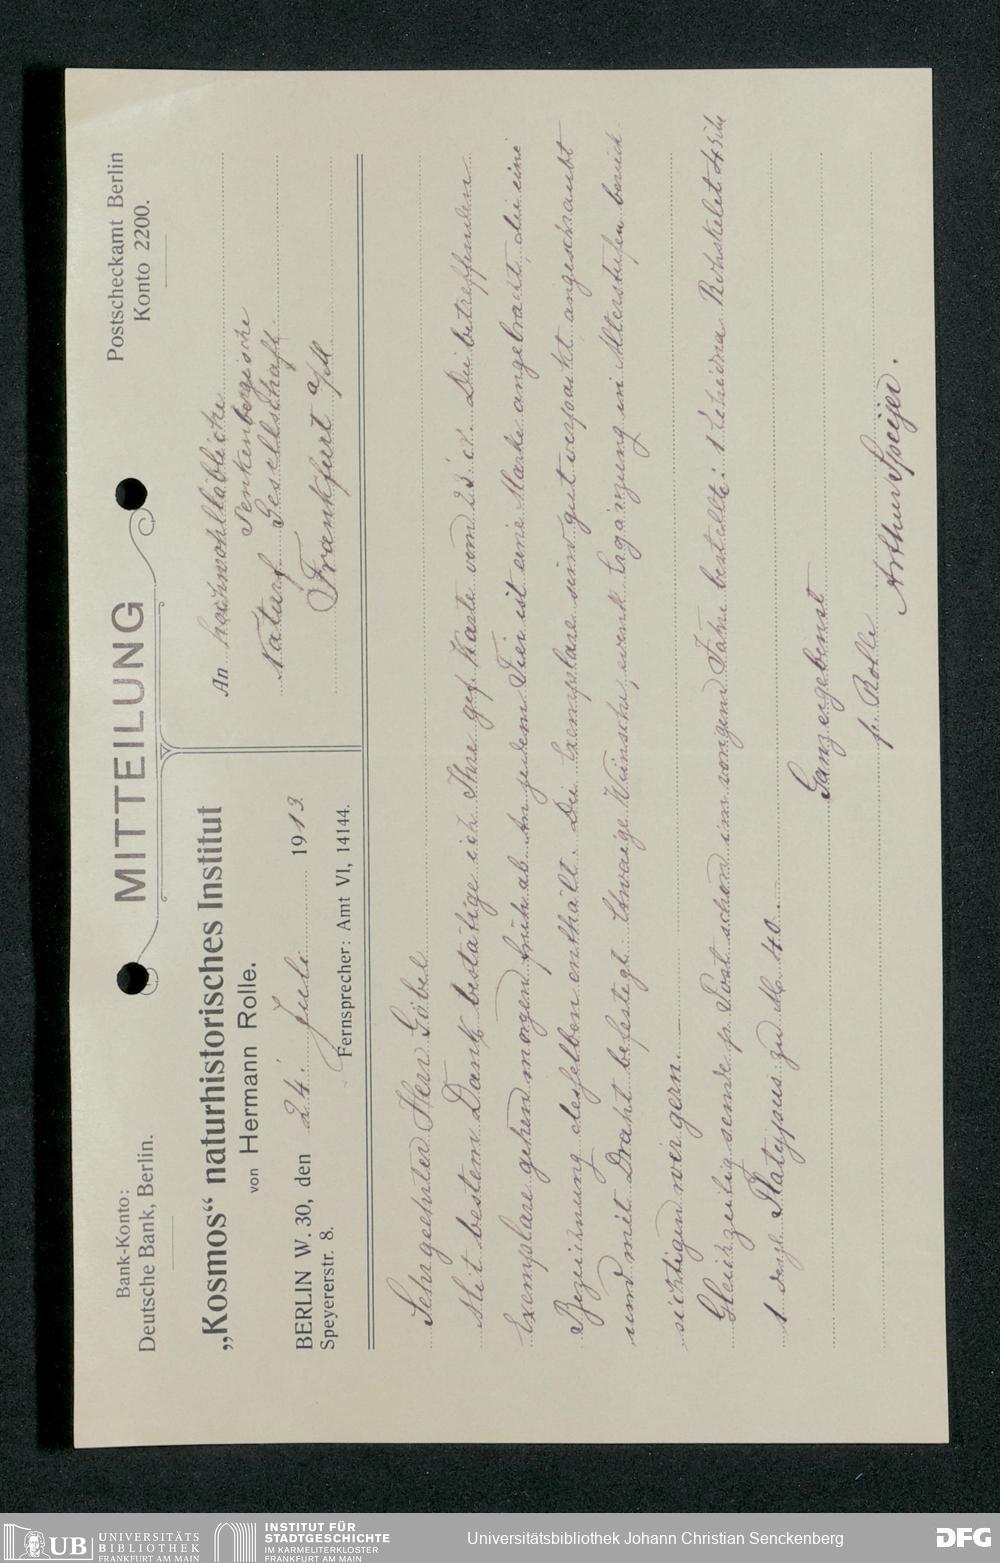 Bank-Konto:
Deutsche Bank, Berlin.
MITTEILUNG
Postscheckamt Berlin
Konto 2200.
„Kosmos“ naturhistorisches Institut
von Hermann Rolle.
BERLIN W. 30, den 24. Juli 1913
Speyererstr. 8.
Fernsprecher: Amt VI, 14144.
An hochwohllöbliche
Senkenbergische
Naturf. Gesellschaft
Frankfurt a/M
Sehr geehrter Herr Göbel
Mit bestem Dank bestätige ich Ihre gef. Karte vom 23. cr. Die betreffenden
Exemplare gehen morgen früh ab. An jedem Tier ist eine Marke angebracht, die eine
Bezeichnung desselben enthält. Die Exemplare sind gut verpackt angeschraubt
und mit Draht befestigt. Etwaige Wünsche, event. Ergänzung in Altersstufen berück-
sichtigen wir gern.
Gleichzeitig sende p. Post schon im vorigem Jahre bestellte: 1 Echidna Rohskelet
1 desgl. Platypus zu M. 40.
Ganz ergebenst
p. Rolle
Arthur Speyer.
UB UNIVERSITÄTS
BIBLIOTHEK
FRANKFURT AM MAIN
INSTITUT FÜR
STADTGESCHICHTE
IM KARMELITERKLOSTER
FRANKFURT AM MAIN
Universitätsbibliothek Johann Christian Senckenberg
DFG